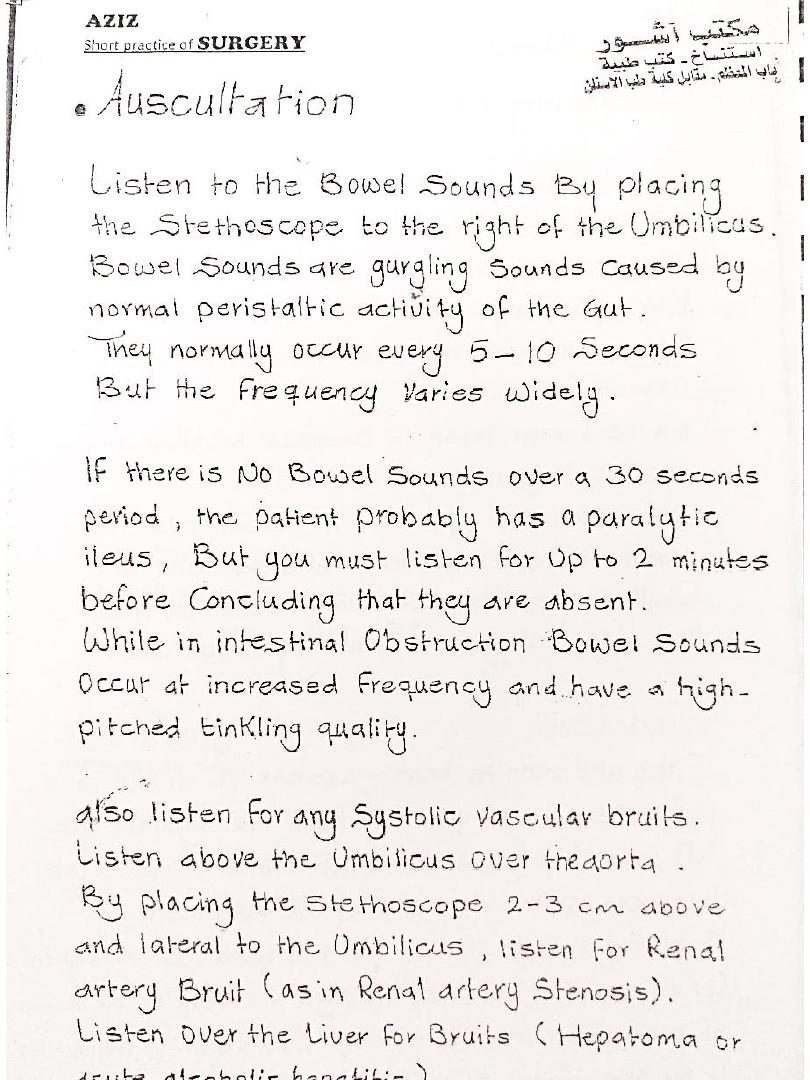 AZIZ
Short practice of SURGERY
مكتب آشور
استنساخ - كتب طبية
باب المعظم - مقابل كلية طب الاسنان
• Auscultation
Listen to the Bowel Sounds By placing
the Stethoscope to the right of the Umbilicus.
Bowel Sounds are gurgling Sounds Caused by
normal peristaltic activity of the Gut.
They normally occur every 5-10 Seconds
But the Frequency Varies Widely.
IF there is No Bowel Sounds over a 30 seconds
period, the patient probably has a paralytic
ileus, But you must listen for Up to 2 minutes
before Concluding that they are absent.
While in intestinal Obstruction Bowel Sounds
Occur at increased Frequency and have a high-
pitched tinkling quality.
also listen for any Systolic Vascular bruits.
Listen above the Umbilicus Over the aorta.
By placing the Stethoscope 2-3 cm above
and lateral to the Umbilicus, listen for Renal
artery Bruit (as in Renal artery Stenosis).
Listen Over the Liver for Bruits (Hepatoma or
acute alcoholic hepatitis)